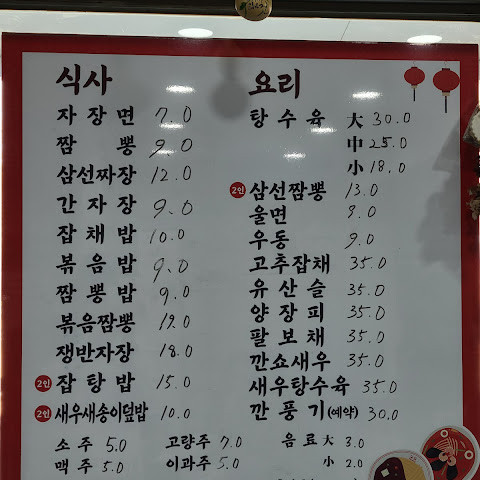 식사
자장면 7.0
짬뽕 9.0
삼선짜장 12.0
간자장 9.0
잡채밥 10.0
볶음밥 9.0
짬뽕밥 9.0
볶음짬뽕 19.0
쟁반자장 18.0
2인 잡탕밥 15.0
2인 새우새송이덮밥 10.0
소주 5.0
맥주 5.0
고량주 7.0
이과주 5.0
요리
탕수육 大 30.0
中 25.0
小 18.0
2인 삼선짬뽕 13.0
울면 9.0
우동 9.0
고추잡채 35.0
유산슬 35.0
양장피 35.0
팔보채 35.0
깐쇼새우 35.0
새우탕수육 35.0
깐풍기(예약) 30.0
음료 大 3.0
小 2.0